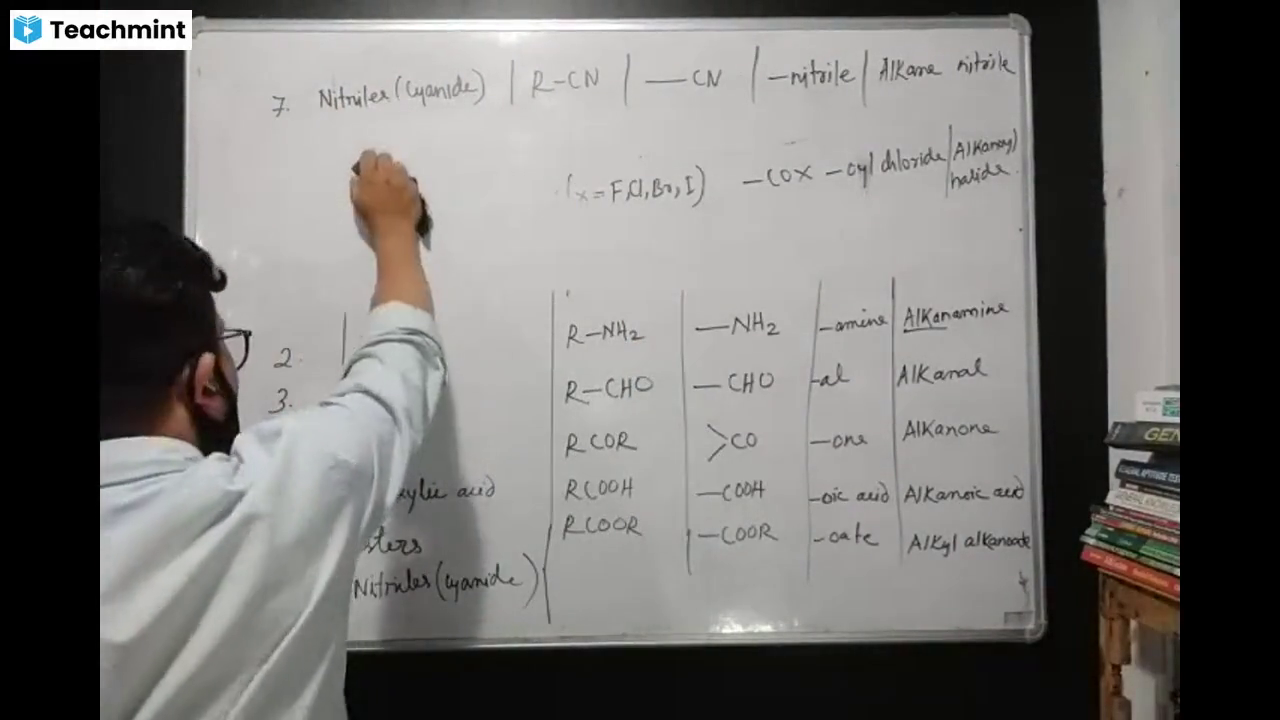 Teachmint
7. Nitriles (cyanide) | R-CN | —CN | -nitrile | Alkane nitrile
(x = F, Cl, Br, I) —COX -oyl chloride | Alkanoyl
halide.
2. R-NH2 —NH2 -amine Alkanamine
3. R-CHO —CHO -al Alkanal
RCOR >CO -one Alkanone
xylic acid RCOOH -COOH -oic acid Alkanoic acid
sters RCOOR -COOR -oate Alkyl alkanoate
Nitriles (cyanide)
GEN